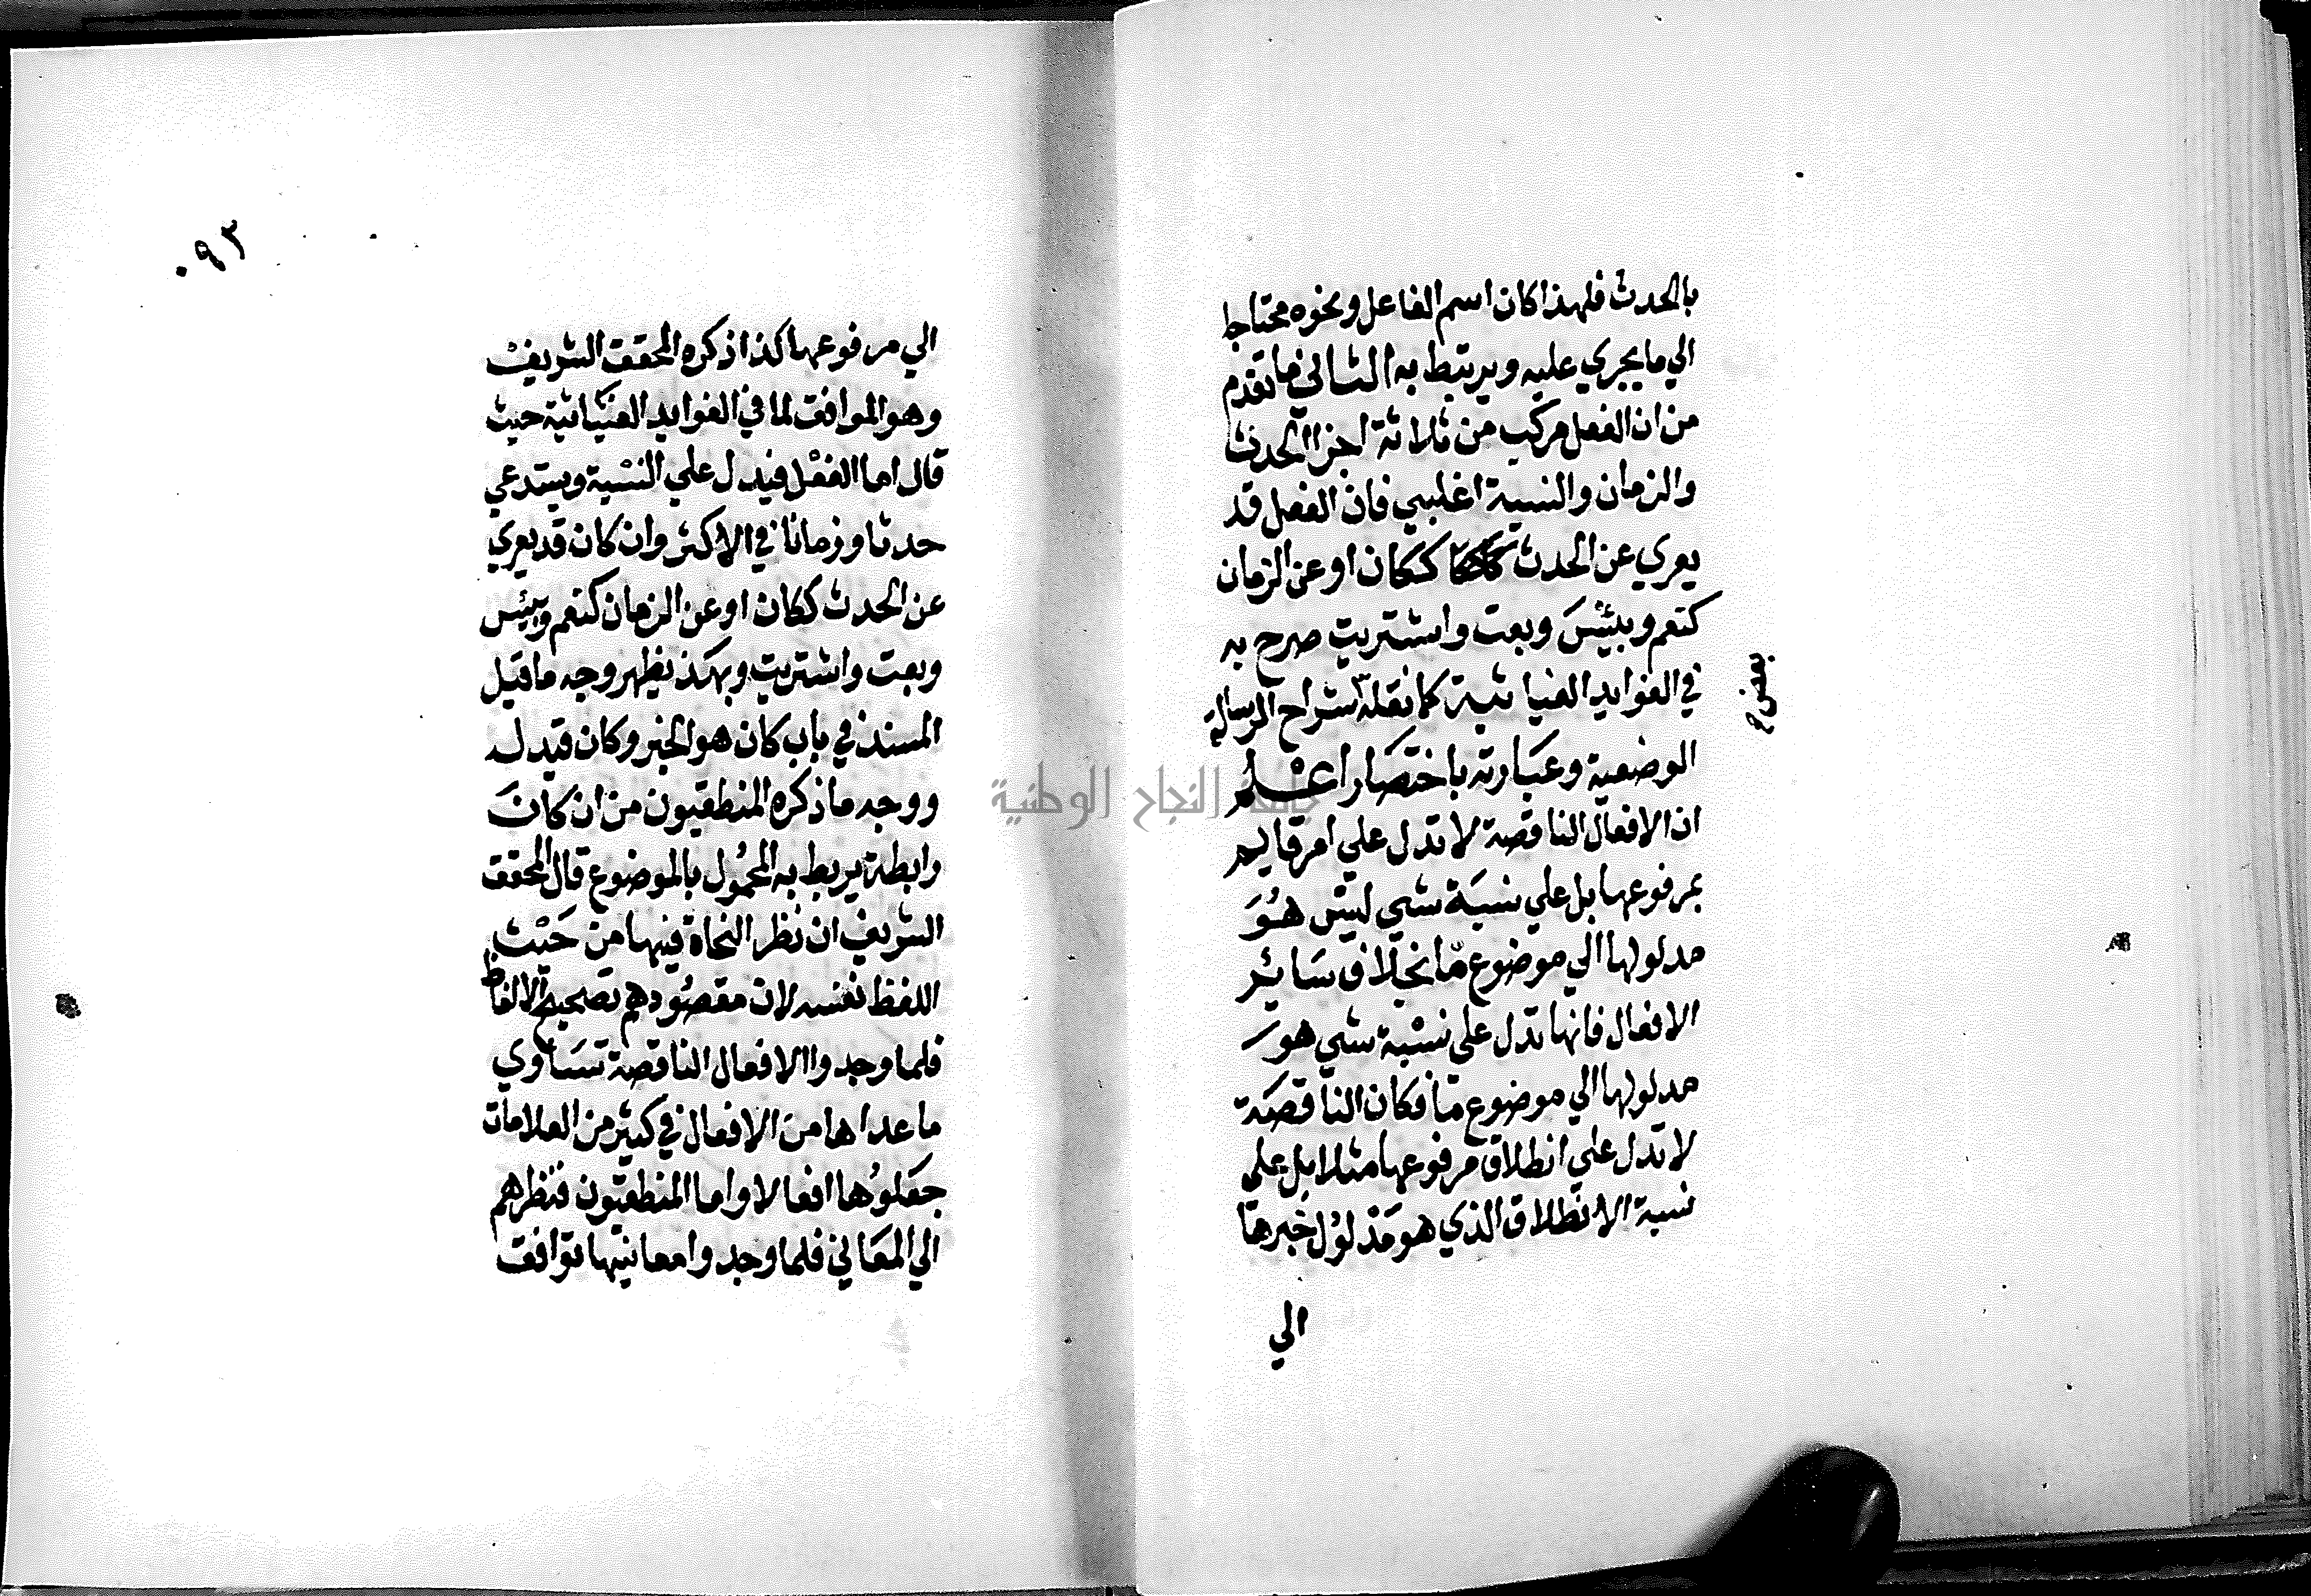 بالحدث فلهذا كان اسم الفاعل ونحوه محتاجا
الي ما يجري عليه ويرتبط به الثاني ما تقدم
من ان الفعل مركب من ثلاثة اجزا الحدث
والزمان والنسبة اغلبي فان الفعل قد
يعري عن الحدث ككان او عن الزمان
كنعم وبيئسَ وبعت واشتريت صرح به
في الفوايد الغياثية كما نقله شراح الرسالة
بعض
الوضعية وعبارته باختصار اعلم
ان الافعال الناقصة لا تدل علي امر قايم
بمرفوعها بل علي نسبة شي ليس هُوَ
مدلولها الي موضوع مّا بخلاف سَائر
الافعال فانها تدل علي نسْبة شي هو
مدلولها الي موضوع مّا فكان الناقصَة
لا تدل علي انطلاق مرفوعها مثلا بل علي
نسبة الانطلاق الذي هو مَدْلُوْل خبرها
الي
٠٩٣
الي مرفوعها كذا ذكره المحقق الشريف
وهو الموافق لما في الفوايد الغيَاثية حيث
قال اما الفعْل فيدل علي النسْبة ويستدعي
حدثا وزمانا في الاكثر وان كان قد يعري
عن الحدث ككان او عن الزمان كنعم وبيئس
وبعت واشتريت وبهذا يظهر وجه ما قيل
المسند في باب كان هو الخبر وكان قيد له
ووجه ما ذكره المنطقيون من ان كانَ
رابطة يربط به المحمُول بالموضوع قال المحقق
الشريف ان نظر النحاة فيها من حَيْث
اللفظ نفسه لان مقصُودهم تصحيح الالفاظ
فلما وجدوا الافعال الناقصة تسَاوي
ما عداها من الافعال في كثير من العلامات
جعَلوُها افعالا واما المنطقيون فنظرهم
الي المعَاني فلما وجدوا معانيها توافق
جامعة النجاح الوطنية